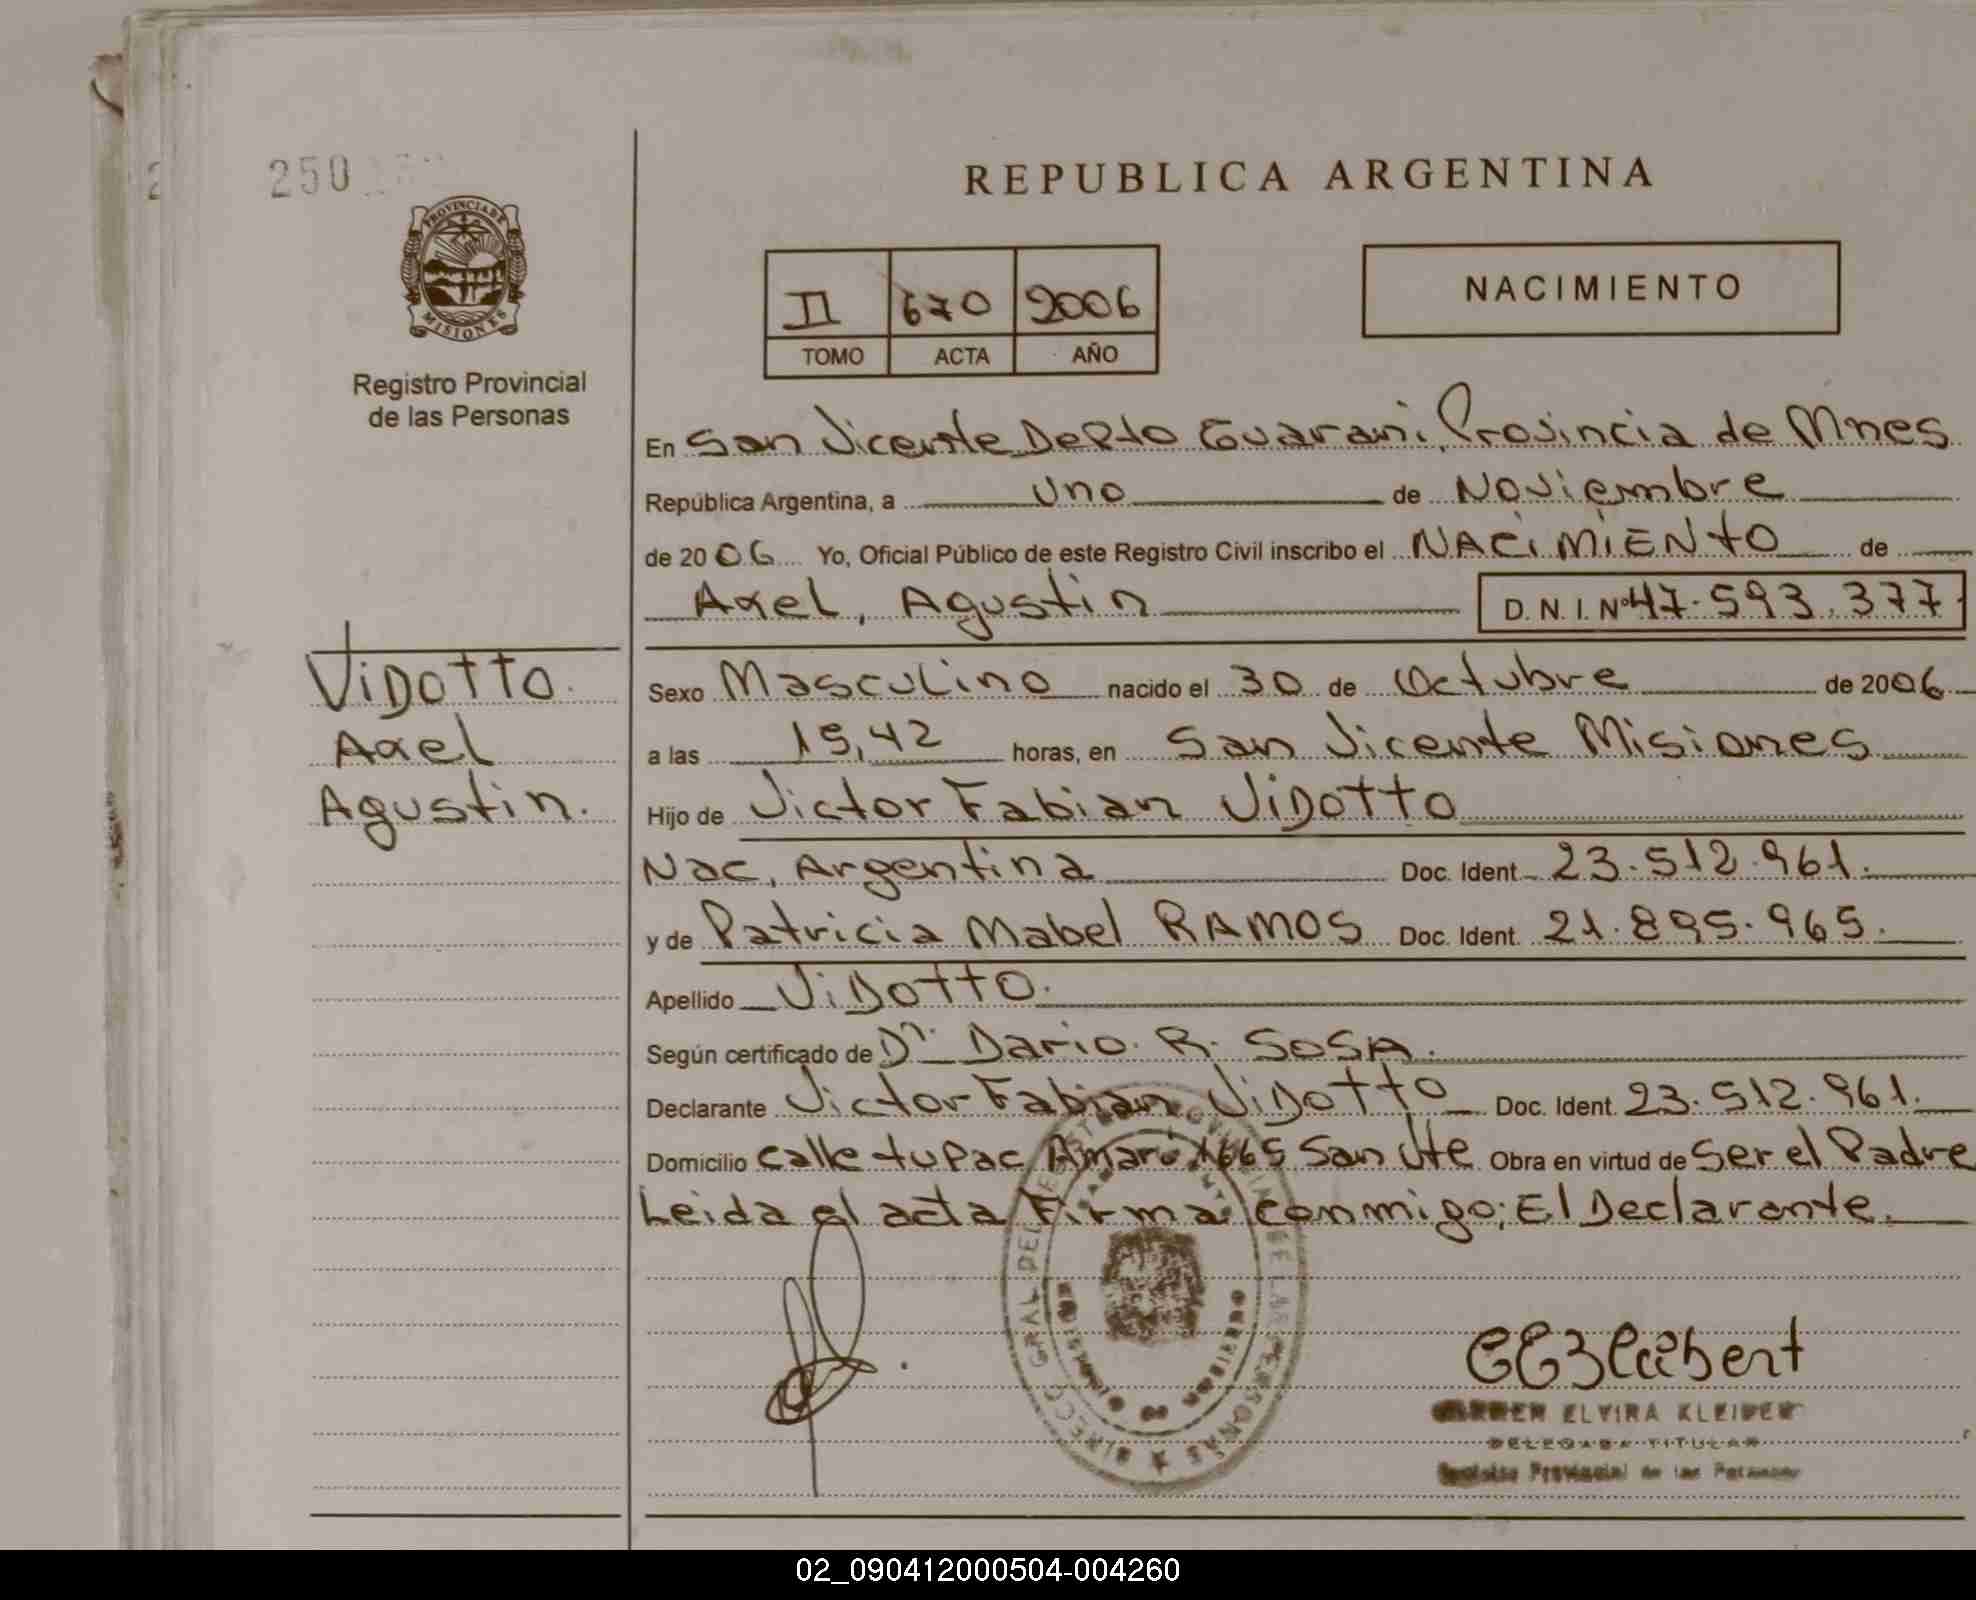 250
PROVINCIA DE
MISIONES
Registro Provincial
de las Personas
REPUBLICA ARGENTINA
II 670 2006
TOMO ACTA AÑO
NACIMIENTO
En San Vicente Depto Guarani, Provincia de Mnes
República Argentina, a uno de Noviembre
de 2006 Yo, Oficial Público de este Registro Civil inscribo el NACIMIENTO de
Axel, Agustin D. N. I. Nº 47.593.377
Vidotto.
Axel
Agustin.
Sexo Masculino nacido el 30 de Octubre de 2006
a las 15,42 horas, en San Vicente Misiones
Hijo de Victor Fabian Vidotto
Nac. Argentina Doc. Ident. 23.512.961.
y de Patricia Mabel RAMOS Doc. Ident. 21.895.965.
Apellido Vidotto.
Según certificado de Dr. Dario. R. SOSA.
Declarante Victor Fabian Vidotto Doc. Ident. 23.512.961.
Domicilio calle tupac Amaru 1665 San Vte Obra en virtud de Ser el Padre
Leida el acta Firma conmigo; El Declarante.
ELVIRA KLEIBER
DELEGADA TITULAR
Registro Provincial de las Personas
02_090412000504-004260